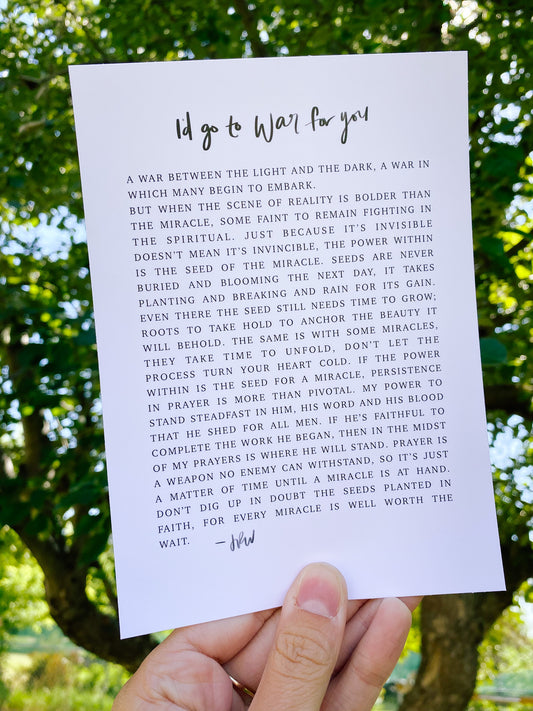 I'd go to War for you
A WAR BETWEEN THE LIGHT AND THE DARK, A WAR IN
WHICH MANY BEGIN TO EMBARK.
BUT WHEN THE SCENE OF REALITY IS BOLDER THAN
THE MIRACLE, SOME FAINT TO REMAIN FIGHTING IN
THE SPIRITUAL. JUST BECAUSE IT'S INVISIBLE
DOESN'T MEAN IT'S INVINCIBLE, THE POWER WITHIN
IS THE SEED OF THE MIRACLE. SEEDS ARE NEVER
BURIED AND BLOOMING THE NEXT DAY, IT TAKES
PLANTING AND BREAKING AND RAIN FOR ITS GAIN.
EVEN THERE THE SEED STILL NEEDS TIME TO GROW;
ROOTS TO TAKE HOLD TO ANCHOR THE BEAUTY IT
WILL BEHOLD. THE SAME IS WITH SOME MIRACLES,
THEY TAKE TIME TO UNFOLD, DON'T LET THE
PROCESS TURN YOUR HEART COLD. IF THE POWER
WITHIN IS THE SEED FOR A MIRACLE, PERSISTENCE
IN PRAYER IS MORE THAN PIVOTAL. MY POWER TO
STAND STEADFAST IN HIM, HIS WORD AND HIS BLOOD
THAT HE SHED FOR ALL MEN. IF HE'S FAITHFUL TO
COMPLETE THE WORK HE BEGAN, THEN IN THE MIDST
OF MY PRAYERS IS WHERE HE WILL STAND. PRAYER IS
A WEAPON NO ENEMY CAN WITHSTAND, SO IT'S JUST
A MATTER OF TIME UNTIL A MIRACLE IS AT HAND.
DON'T DIG UP IN DOUBT THE SEEDS PLANTED IN
FAITH, FOR EVERY MIRACLE IS WELL WORTH THE
WAIT.